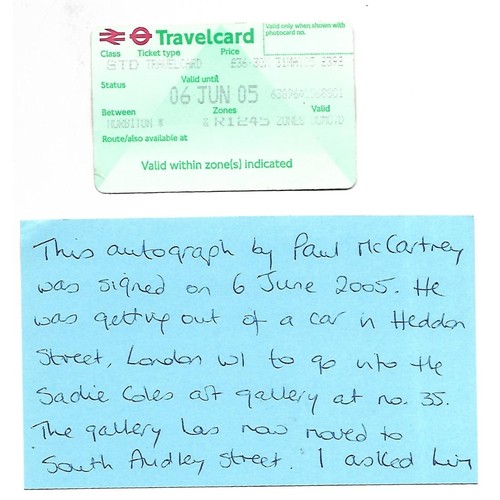 Travelcard
Valid only when shown with
photocard no.
Class Ticket type Price
STD TRAVELCARD
Status Valid until
06 JUN 05
Between Zones Valid
SURBITON * & R1245 ZONES
Route/also available at
Valid within zone(s) indicated
This autograph by Paul McCartney
was signed on 6 June 2005. He
was getting out of a car in Heddon
Street, London W1 to go into the
Sadie Coles art gallery at no. 35.
The gallery has now moved to
South Audley Street. I asked him